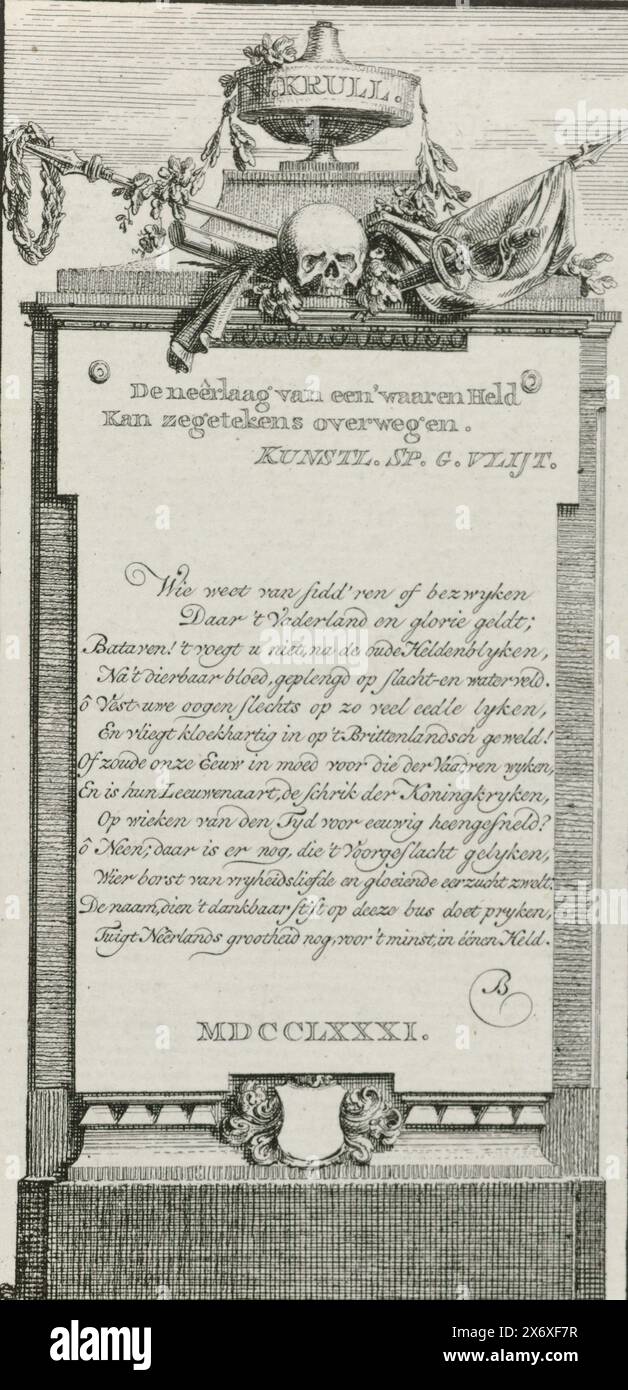 .KRULL.
De neêrlaag van een' waaren Held
Kan zegetekens overwegen.
KUNSTL. SP. G. VLIJT.
Wie weet van sidd'ren of bezwyken
Daar 't Vaderland en glorie geldt;
Bataven! 't voegt u niet, na de oude Heldenblyken,
Na 't dierbaar bloed, geplengd op slacht-en waterveld.
ô Vest uwe oogen slechts op zo veel eedle lyken,
En vliegt kloekhartig in op 't Brittenlandsch geweld!
Of zoude onze Eeuw in moed voor die der Vaadren wyken,
En is hun Leeuwenaart, de schrik der Koningkryken,
Op wieken van den Tyd voor eeuwig heengesneld?
ô Neen; daar is er nog, die 't Voorgeslacht gelyken,
Wier borst van vryheidsliefde en gloeiende eerzucht zwelt.
De naam, dien 't dankbaar stift op deeze bus doet pryken,
Tuigt Neêrlands grootheid nog, voor 't minst, in éénen Held.
B
MDCCLXXXI.
alamy
Image ID: 2E6XF7R
www.alamy.com